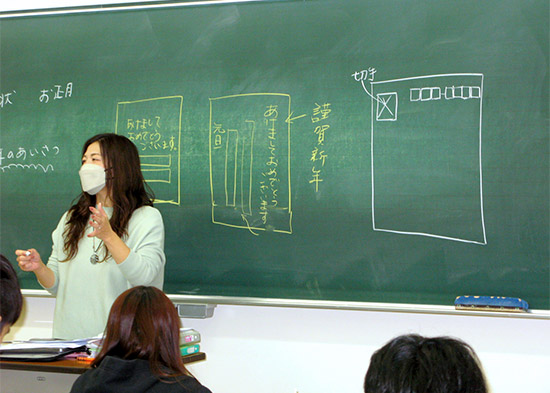 状 お正月
のあいさつ
あけまして
おめでとう
ございます
元旦
あけましておめでとう
ございます
謹賀新年
切手